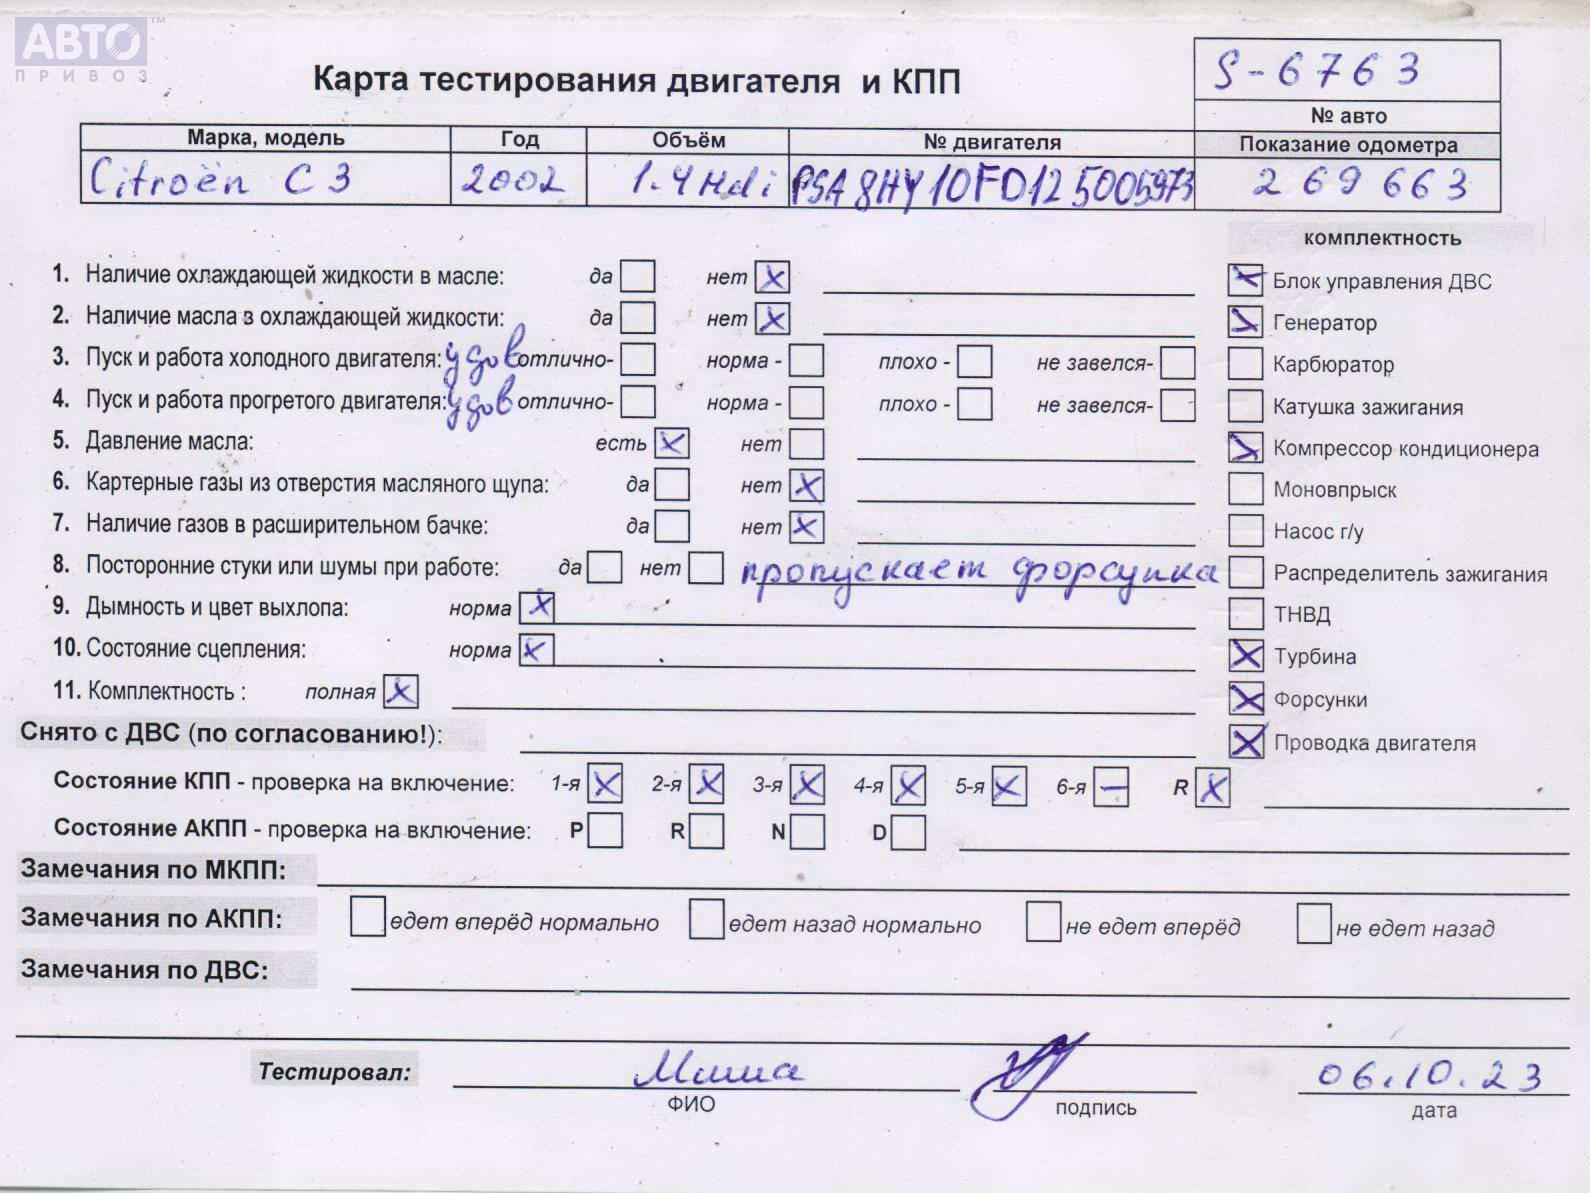 АВТО™
ПРИВОЗ
S-6763
Карта тестирования двигателя и КПП
№ авто
Марка, модель Год Объём № двигателя Показание одометра
Citroën C3 2002 1.4 Hdi PSA8HY10FD125005973 269663
комплектность
1. Наличие охлаждающей жидкости в масле: да нет x
Блок управления ДВС
2. Наличие масла в охлаждающей жидкости: да нет x
Генератор
3. Пуск и работа холодного двигателя: удов отлично- норма - плохо - не завелся-
Карбюратор
4. Пуск и работа прогретого двигателя: удов отлично- норма - плохо - не завелся-
Катушка зажигания
5. Давление масла: есть x нет
Компрессор кондиционера
6. Картерные газы из отверстия масляного щупа: да нет x
Моновпрыск
7. Наличие газов в расширительном бачке: да нет x
Насос г/у
8. Посторонние стуки или шумы при работе: да нет пропускает форсунка
Распределитель зажигания
9. Дымность и цвет выхлопа: норма x
ТНВД
10. Состояние сцепления: норма x
Турбина
11. Комплектность : полная x
Форсунки
Снято с ДВС (по согласованию!):
Проводка двигателя
Состояние КПП - проверка на включение: 1-я x 2-я x 3-я x 4-я x 5-я x 6-я — R x
Состояние АКПП - проверка на включение: P R N D
Замечания по МКПП:
Замечания по АКПП: едет вперёд нормально едет назад нормально не едет вперёд не едет назад
Замечания по ДВС:
Тестировал: Миша 06.10.23
ФИО подпись дата